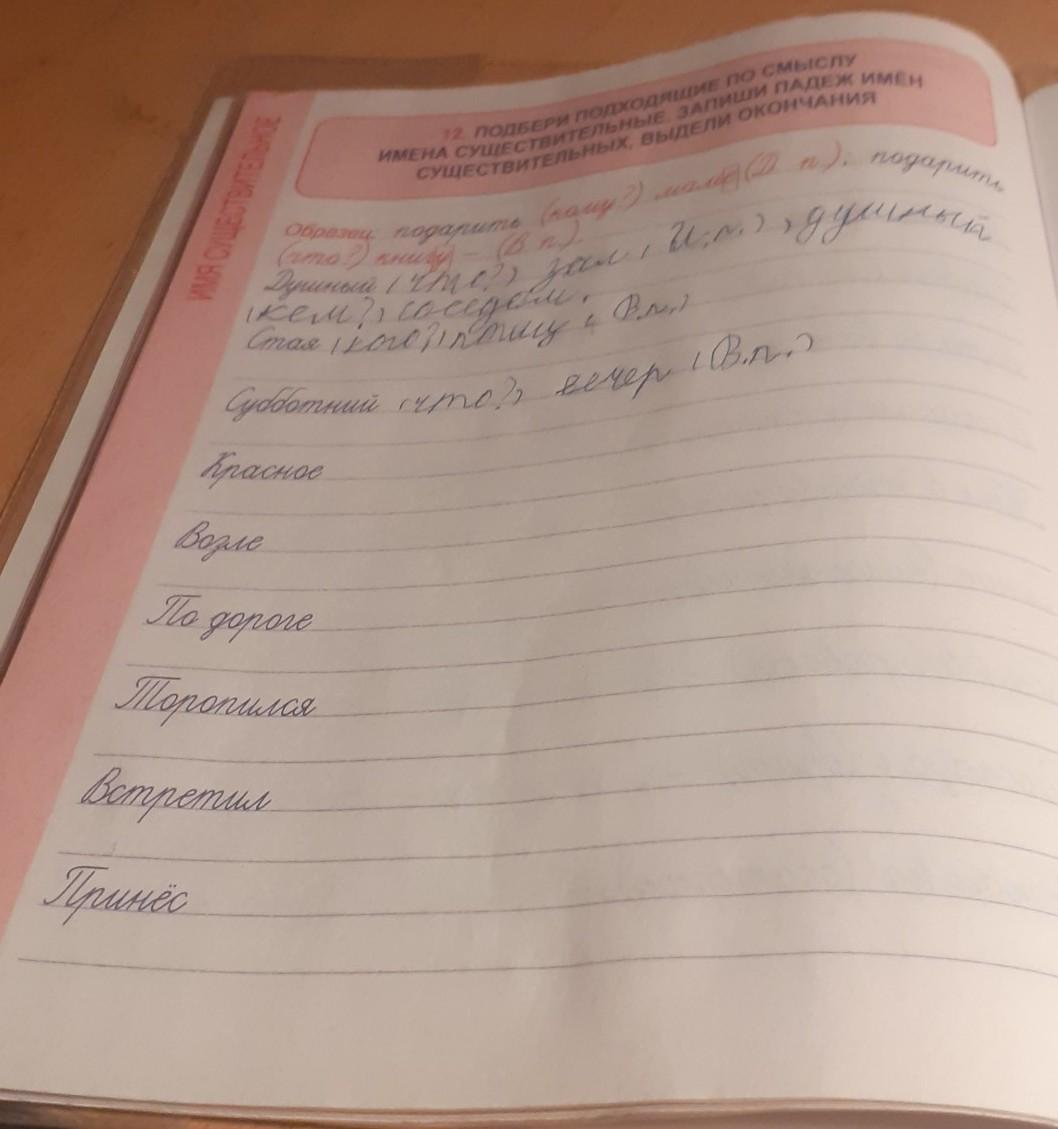 ИМЯ СУЩЕСТВИТЕЛЬНОЕ
12. ПОДБЕРИ ПОДХОДЯЩИЕ ПО СМЫСЛУ
ИМЕНА СУЩЕСТВИТЕЛЬНЫЕ. ЗАПИШИ ПАДЕЖ ИМЁН
СУЩЕСТВИТЕЛЬНЫХ, ВЫДЕЛИ ОКОНЧАНИЯ
Образец: подарить (кому?) маме (Д. п.); подарить
(что?) книгу – (В. п.).
Душный (что?) зал (И.п.), душный
(кем?) соседом.
Стая (кого?) птицу (В.п.)
Субботний (что?) вечер (В.п.)
Красное
Возле
По дороге
Торопился
Встретил
Принёс